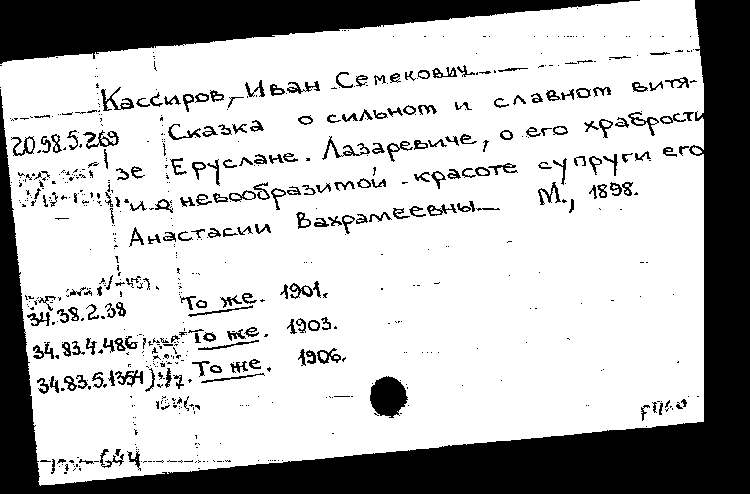 Кассиров, Иван Семекович
20.98.5.269 Сказка о сильном и славном витя-
зе Еруслане Лазаревиче, о его храбрости
и о невообразимой красоте супруги его
Анастасии Вахрамеевны М., 1898.
34.38.2.38 То же. 1901.
34.83.4.486 То же. 1903.
34.83.5.1354 То же. 1906.
644